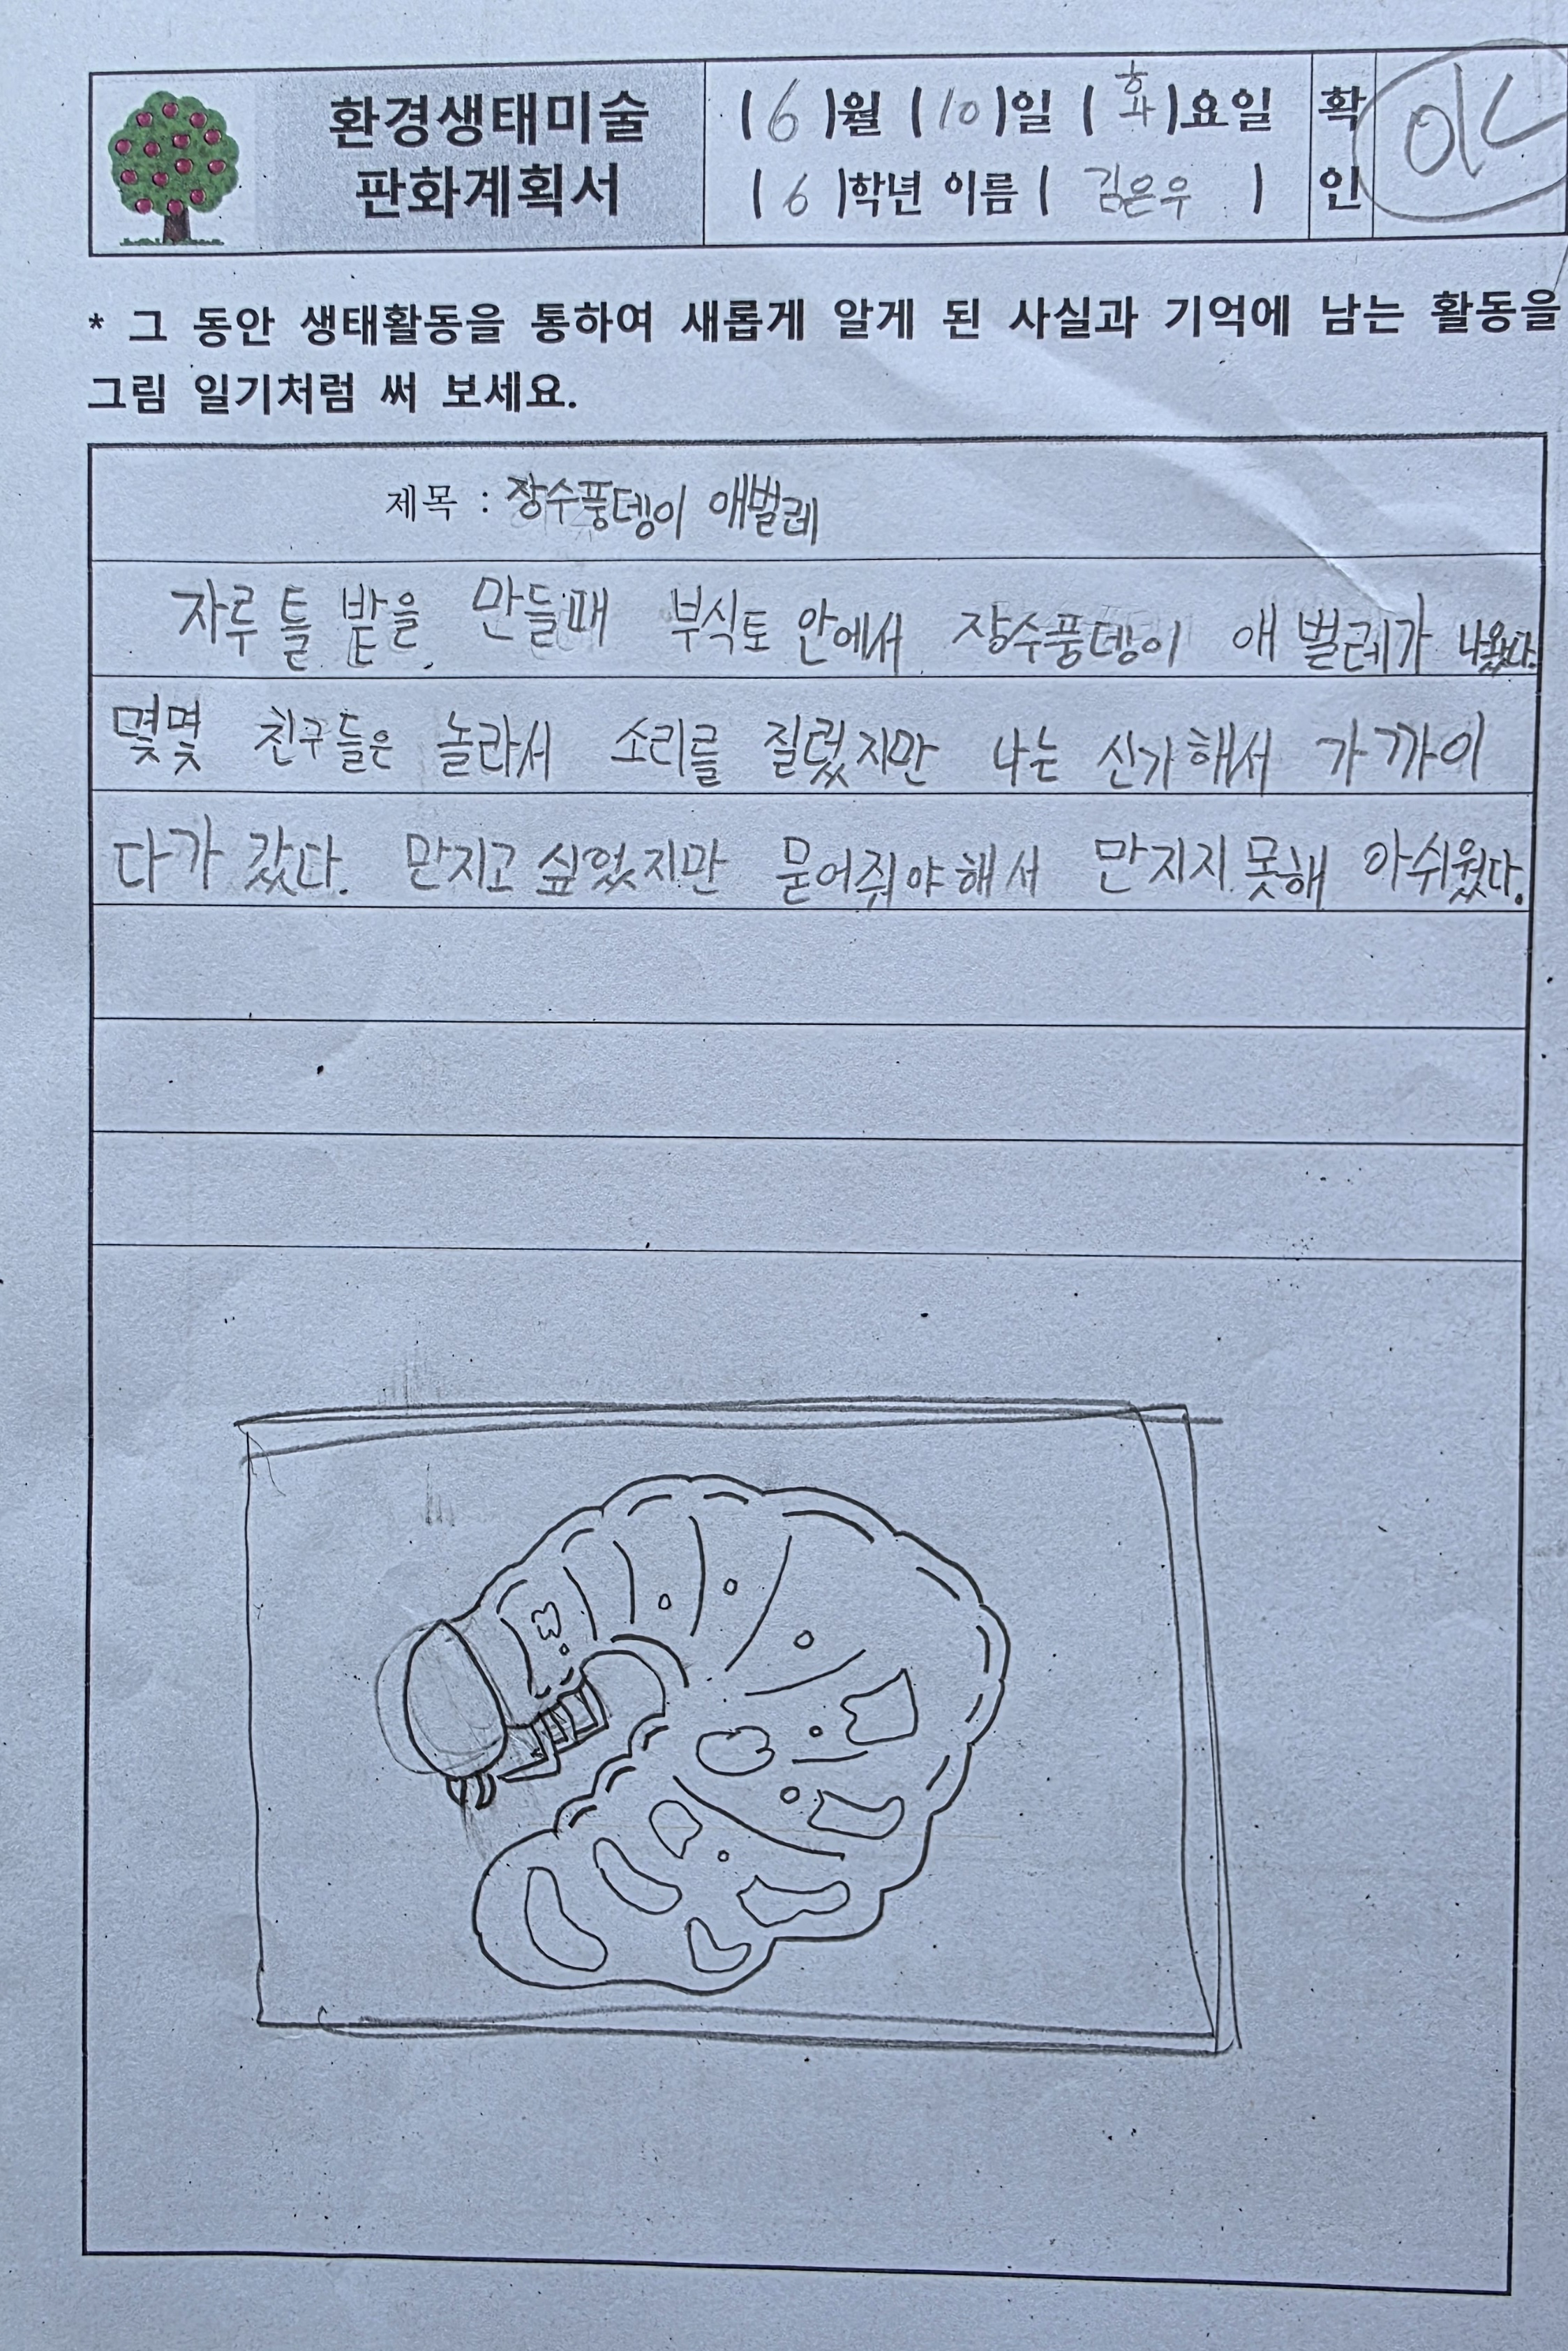 환경생태미술
판화계획서
(6)월 (10)일 (화)요일
(6)학년 이름 (김은우)
확인
* 그 동안 생태활동을 통하여 새롭게 알게 된 사실과 기억에 남는 활동을
그림 일기처럼 써 보세요.
제목 : 장수풍뎅이 애벌레
자루 틀 밭을 만들때 부식토 안에서 장수풍뎅이 애벌레가 나왔다.
몇몇 친구들은 놀라서 소리를 질렀지만 나는 신기해서 가까이
다가 갔다. 만지고 싶었지만 묻어줘야해서 만지지 못해 아쉬웠다.